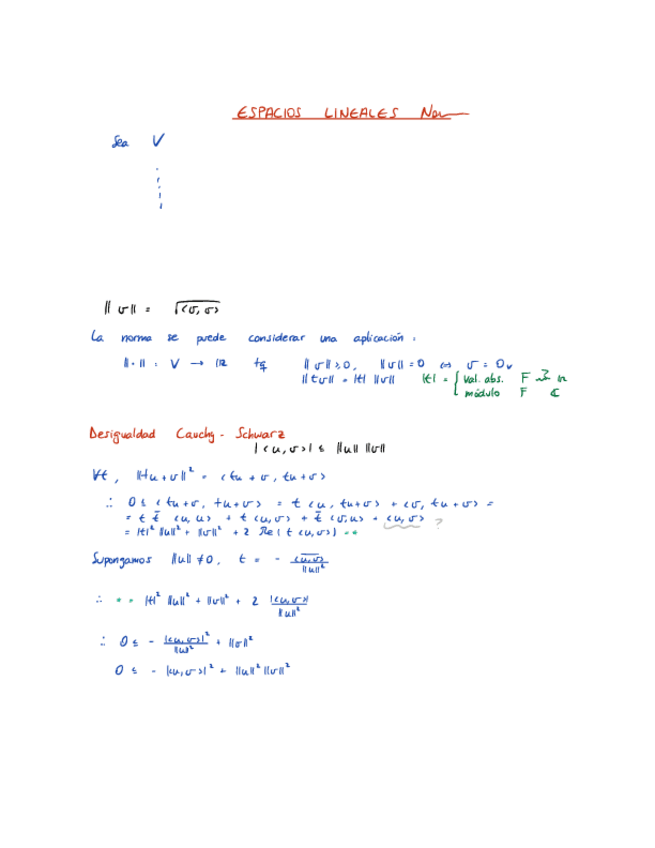 ESPACIOS LINEALES Nor
Sea V
‖v‖ = √⟨v, v⟩
La norma se puede considerar una aplicación :
‖·‖ : V → ℝ tq ‖v‖ ≥ 0, ‖v‖ = 0 ⇔ v = 0_V
‖tv‖ = |t| ‖v‖ |t| = { val. abs. F ℝ
módulo F ℂ
Desigualdad Cauchy - Schwarz
|⟨u, v⟩| ≤ ‖u‖ ‖v‖
∀t, ‖tu + v‖² = ⟨tu + v, tu + v⟩
∴ 0 ≤ ⟨tu + v, tu + v⟩ = t ⟨u, tu + v⟩ + ⟨v, tu + v⟩ =
= t t̄ ⟨u, u⟩ + t ⟨u, v⟩ + t̄ ⟨v, u⟩ + ⟨u, v⟩ ?
= |t|² ‖u‖² + ‖v‖² + 2 Re( t ⟨u, v⟩ ) **
Supongamos ‖u‖ ≠ 0, t = - \overline{⟨u, v⟩} / ‖u‖²
∴ ** |t|² ‖u‖² + ‖v‖² + 2 |⟨u, v⟩| / ‖u‖²
∴ 0 ≤ - |⟨u, v⟩|² / ‖u‖² + ‖v‖²
0 ≤ - |⟨u, v⟩|² + ‖u‖² ‖v‖²